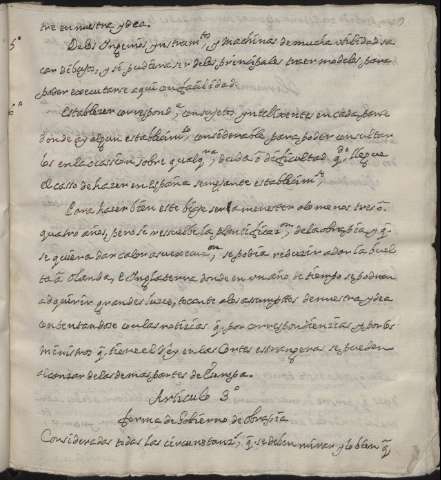 tre en nuestra ydea.
5º Delos Ingenios, ynstram.tos, y Machinas de mucha utilidad sa
car dibujos, y si pudiera ser delos principales traer modelos para
poder executarse aqui con facilidad.
6º Establezer correspond.ª, con sujetos yntelixentes en cada parte
donde ay algun establecim.to considerable para poder consultar
los en la ocassion sobre qualq.ra deuda ô dificultad q.do llegue
el casso de hazer en España semejante establecim.to
Para hazer bien este biaje seria menester alo menos tres ô
quatro años, pero si se resuelbe la planificaz.on de la obrapia y q.e
se quiera dar calor a su execuz.on, se podia reduzir a dar la buel
ta â Olanda, e Inglaterra donde en un año de tiempo se podran
adquirir grandes luzes, tocante alos asumptos de nuestra ydea
contentandose con las noticias q.e por correspondienzias y por los
ministros q.e tiene el Rey en las Cortes estrangeras se pueden
alcanzar de las demas partes de Europa.
Articulo 3º
forma de Gobierno de obrapia
Consideradas todas las circunstanz.s q.e se deben mirar y lo bien q.e